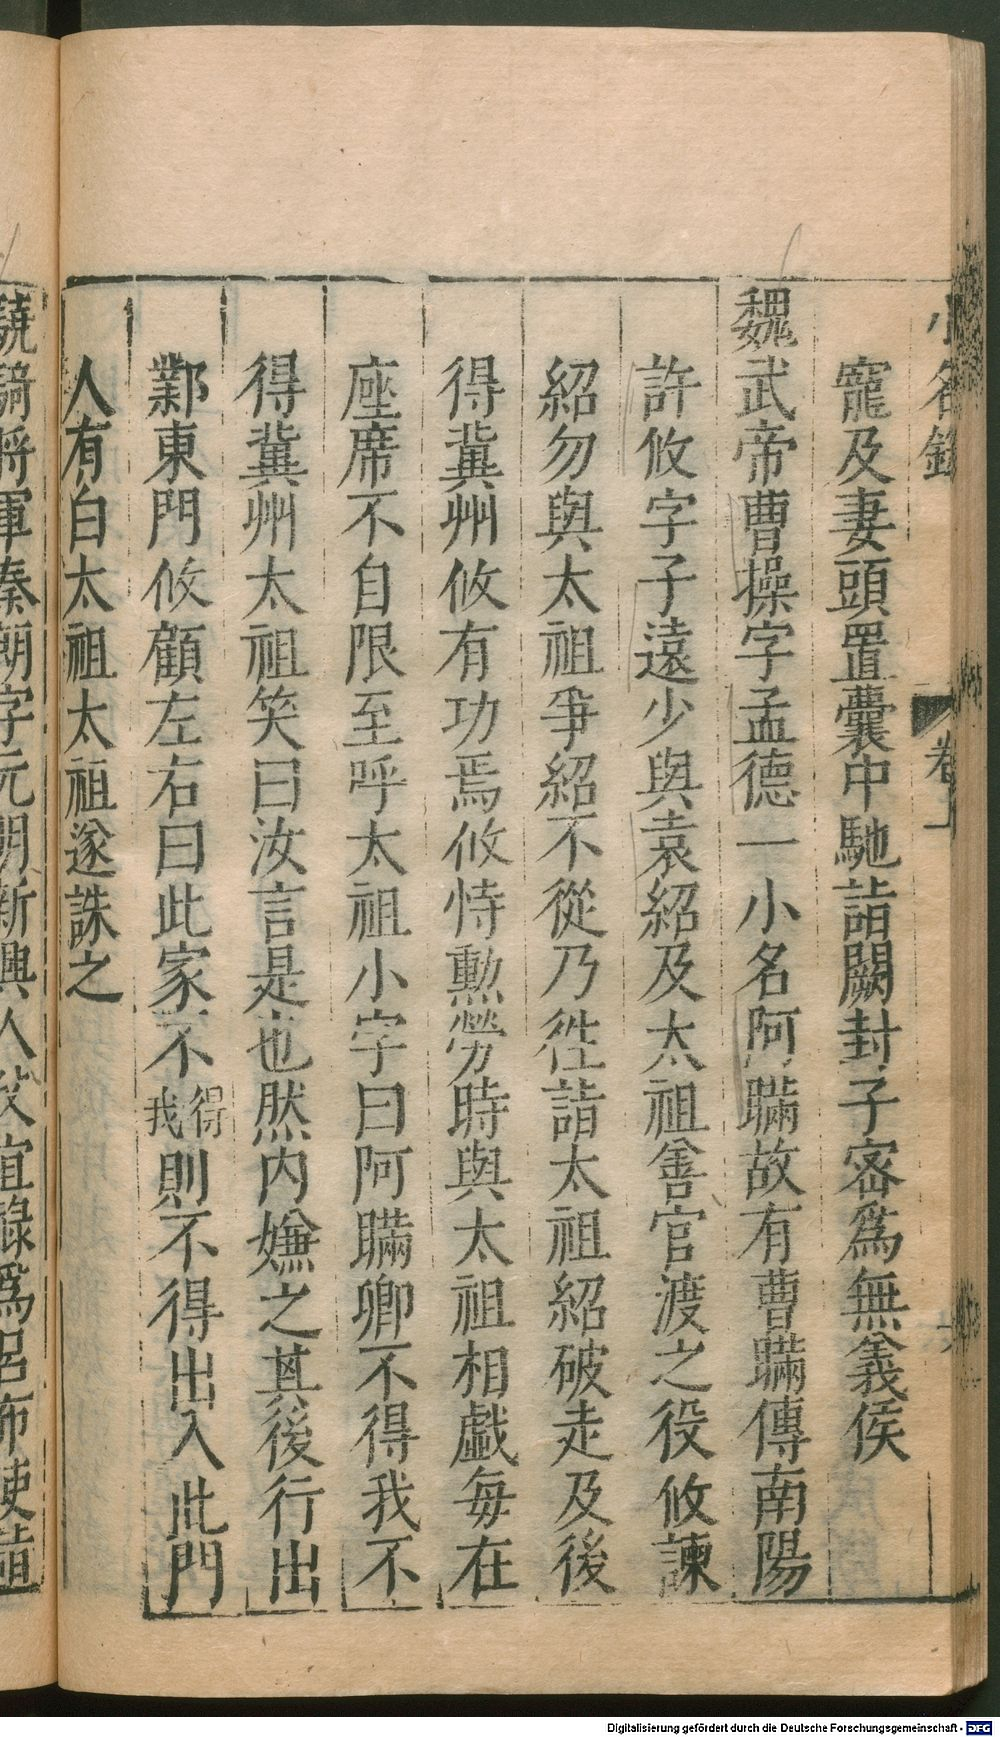 寵及妻頭置囊中馳詣闕封子密爲無義侯
魏武帝曹操字孟德一小名阿瞞故有曹瞞傳南陽
許攸字子遠少與袁紹及太祖善官渡之役攸諫
紹勿與太祖爭紹不從乃徃詣太祖紹破走及後
得冀州攸有功焉攸恃勲勞時與太祖相戲每在
座席不自限至呼太祖小字曰阿瞞卿不得我不
得冀州太祖笑曰汝言是也然内嫌之其後行出
鄴東門攸顧左右曰此家不得我則不得出入此門
人有白太祖太祖遂誅之
驍騎將軍秦朗字元明新興人父宜祿爲呂布使詣
Digitalisierung gefördert durch die Deutsche Forschungsgemeinschaft - DFG